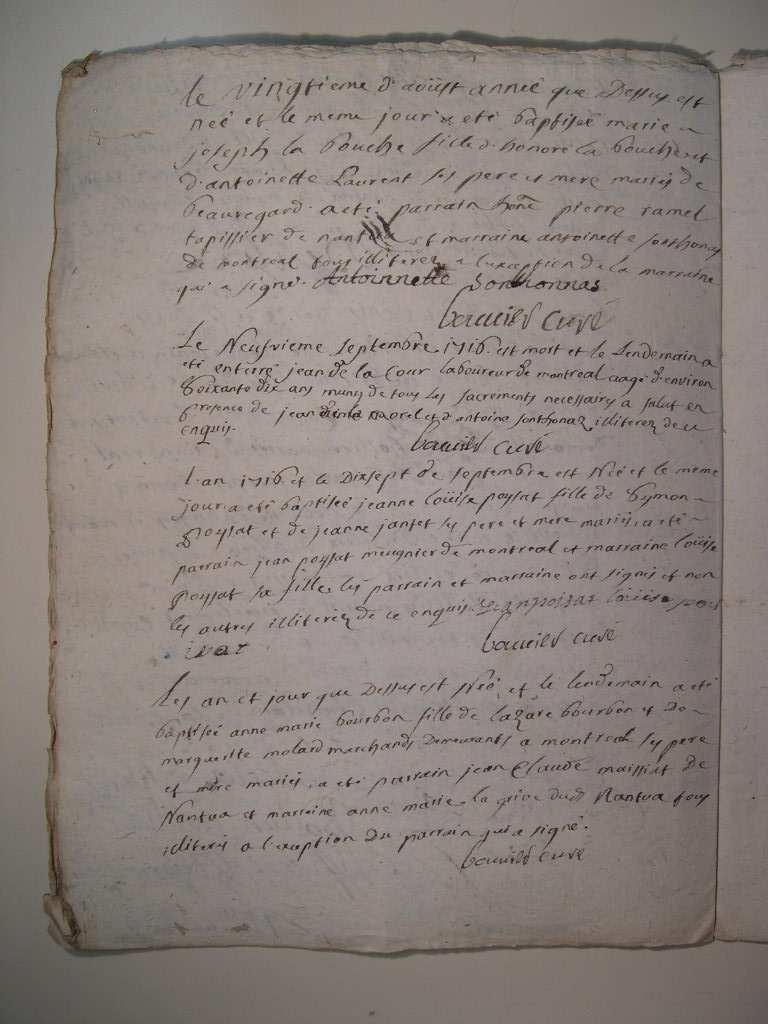 le vingtieme d'aoüst anneé que Dessus est
neé et le meme jour a eté baptisee marie
joseph la bouche fille d'honoré la bouche et
d'antoinette Laurent ses pere et mere mariés de
beauregard a eté parrain honē pierre ramel
tapissier de nantua et marraine antoinette sonthonas
de montreal tous illiterez a l'exception de la marraine
qui a signé. Antoinnette Sonthonnas
curé
Le Neufvieme septembre 1716. est mort et le Lendemain a
eté enterré jean de la Cour laboureur de montreal aagé d'environ
soixante dix ans muny de tous les sacrements necessaires a salut en
presence de jean morel et d'antoine sonthonas illiterez de ce
enquis. curé
l'an 1716 et le Dixsept de septembre est Neé et le meme
jour a eté baptiseé jeanne loüise poysat fille de symon
poysat et de jeanne jantet ses pere et mere mariés, a eté
parrain jean poysat meugnier de montreal et marraine loüise
poysat sa fille les parrain et marraine ont signés et non
les autres illiterez de ce enquis. jean poizat loüise poi
zat curé
Les an et jour que Dessus est Neé et le lendemain a eté
baptiseé anne marie bourbon fille de lazare bourbon et de
margueritte molard marchands Demeurants a montreal ses pere
et mere mariés, a eté parrain jean Claude maissiat de
Nantua et marraine anne marie la grive dudt Nantua tous
illiterés a l'exception du parrain qui a signé.
curé